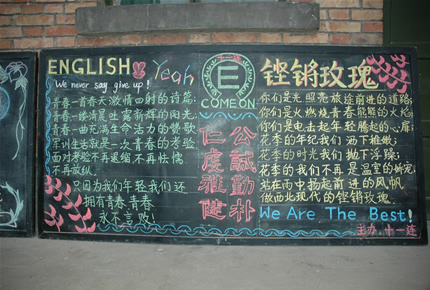 ENGLISH Yeah
We never say give up!
青春一首春天激情四射的诗篇;
青春一缕清晨吐露新辉的阳光;
青春一曲充满生命活力的赞歌
军训生活就是一次青春的考验
面对考验不再退缩不再怯懦
不再放纵。
只因为我们年轻我们还
拥有青春 青春
永不言败!
E
COME ON
公誠勤朴
仁 雅健
铿锵玫瑰
你们是光 照亮旅途前进的道路;
你们是火 燃烧青春熊熊的火焰;
你们是电 击起年轻腾起的心扉;
花季的年纪我们 下稚嫩;
花季的时光我们抛下浮躁;
花季的我们不再是温室的娇宠;
站在雨中扬起前进的风帆
做西北现代的铿锵玫瑰.
We Are The Best!
主办:十一连